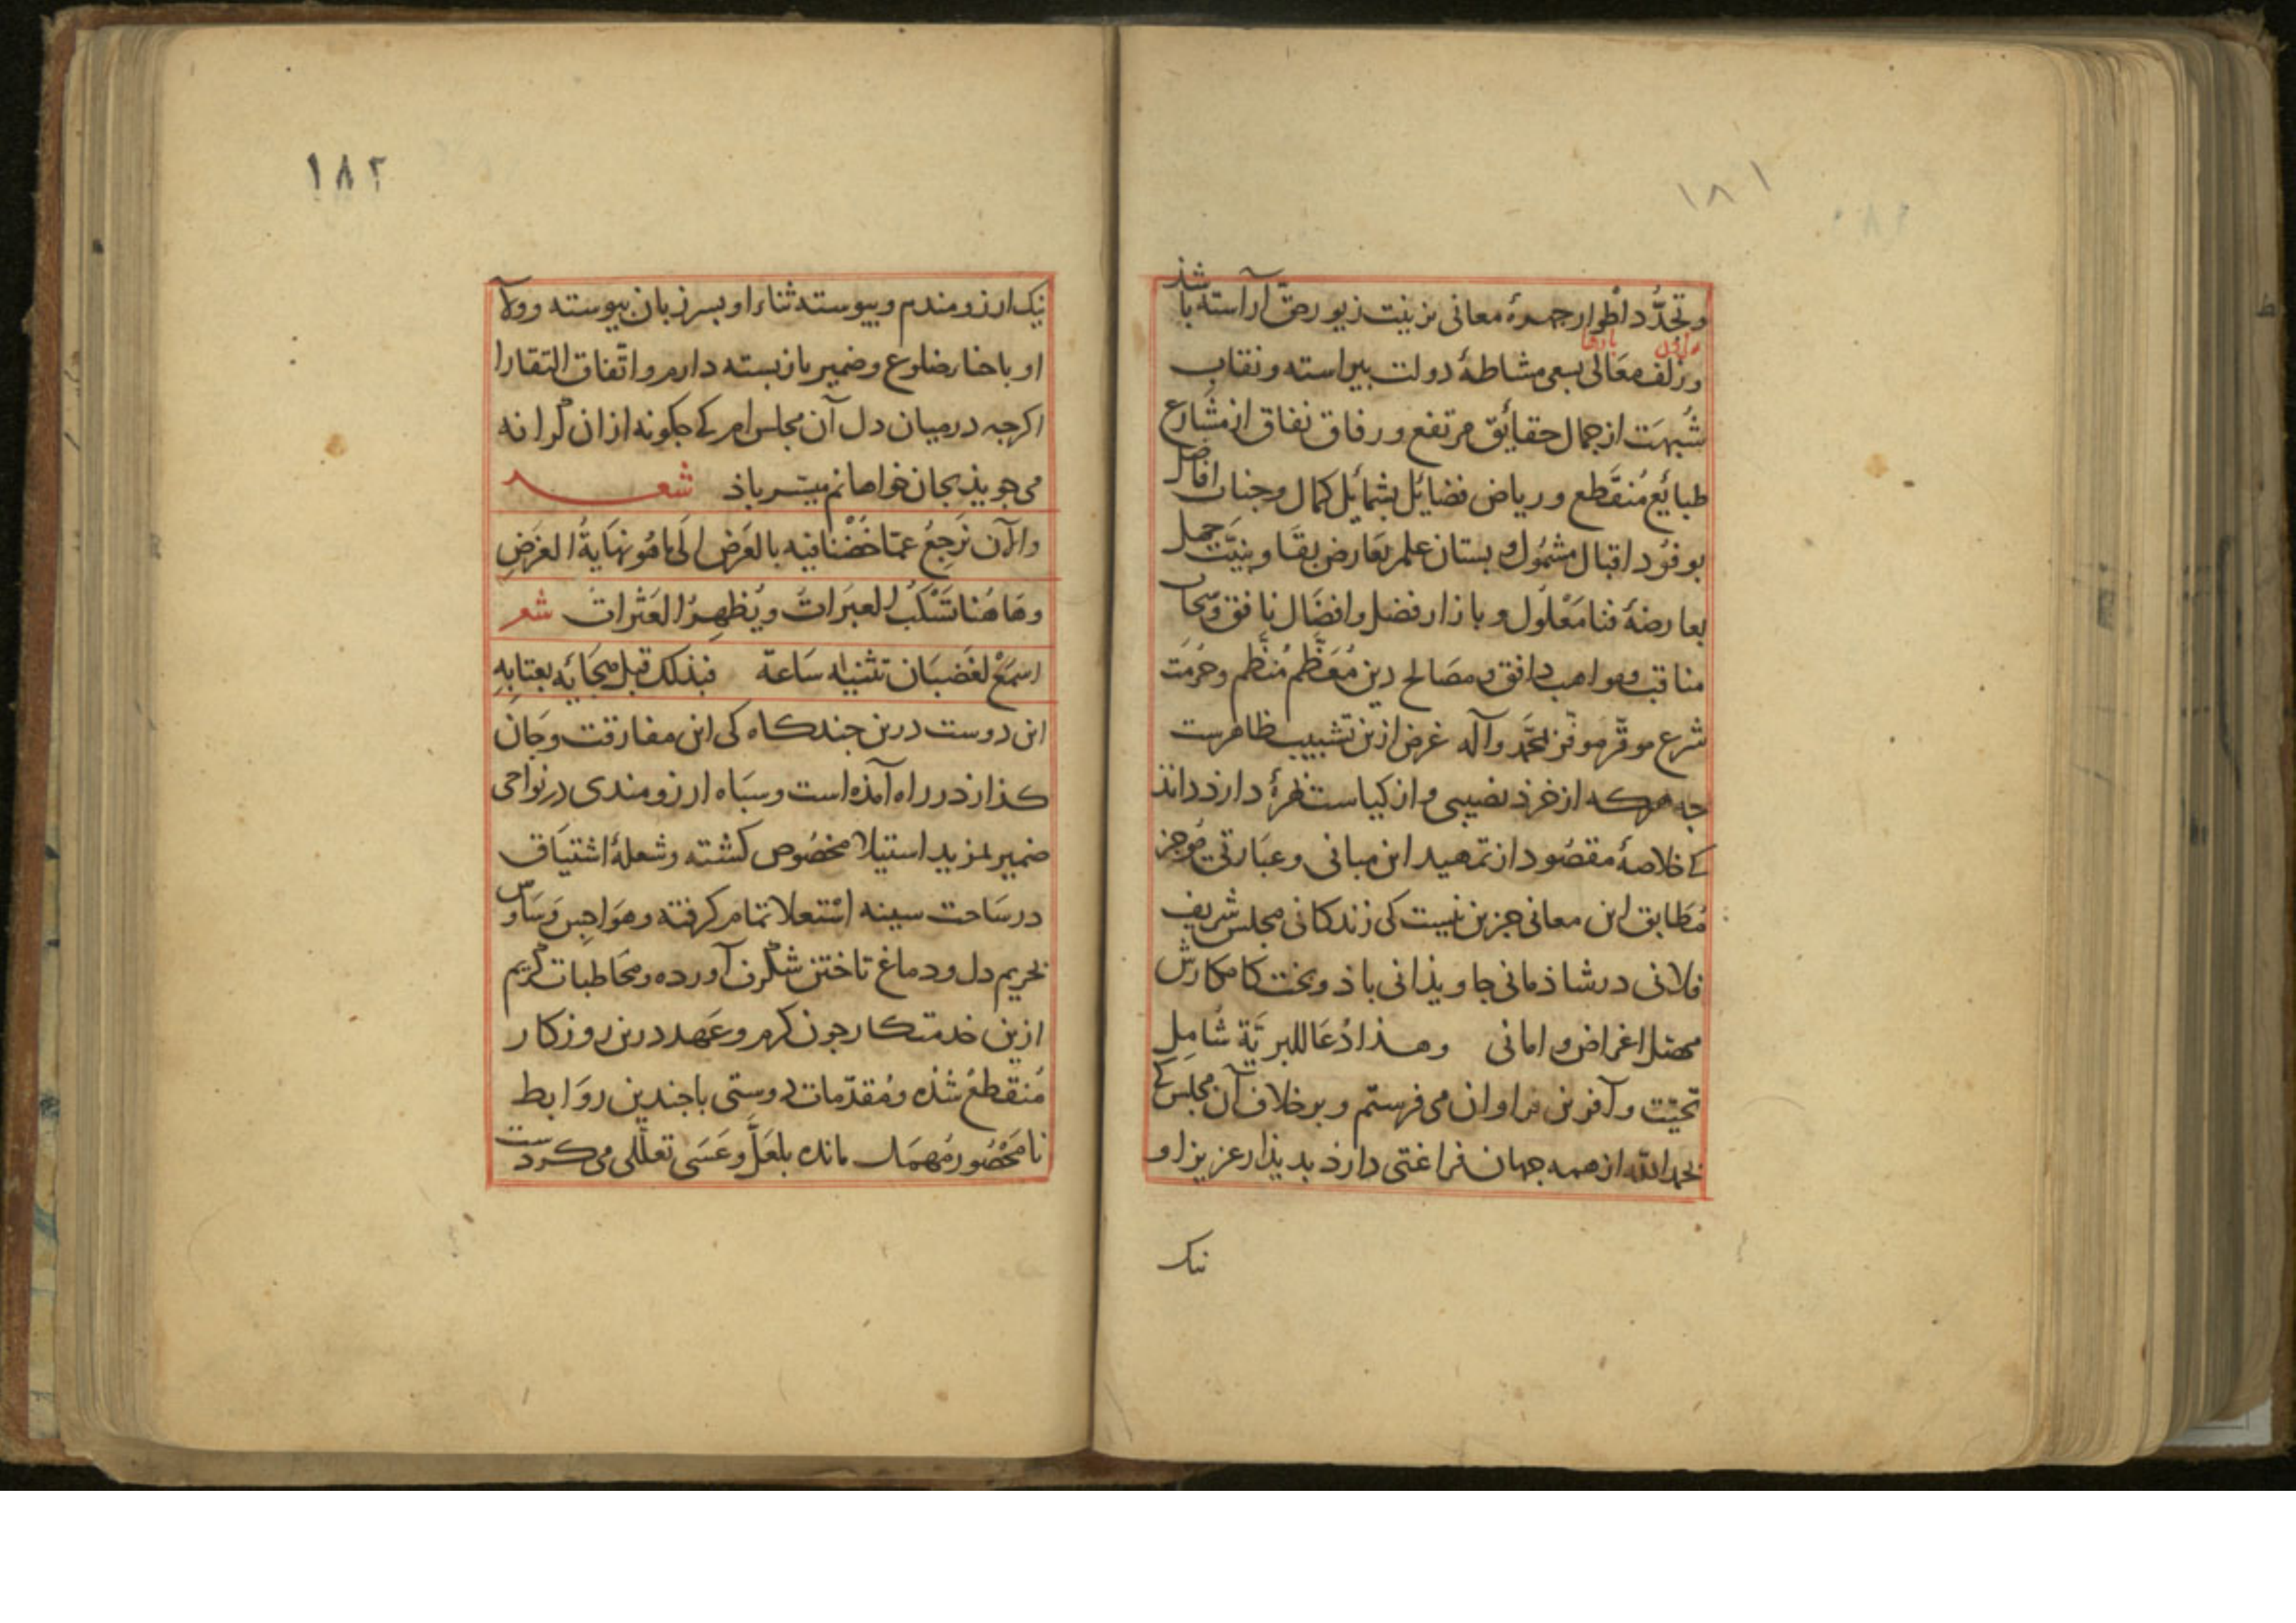 ١٨١
وتجدُّد اطوار چهرهٔ معانی بزینت زیور حق آراسته باشذ
وزلف معَالی بسعی مشاطهٔ دولت بیراسته ونقاب
شُبهَت از جمال حقائق مرتفع ورفاق نفاق از مشارع
طبائع مُنقَطع وریاض فضائل بشمائل کمال وجناب افاضل
بوفوُد اقبال مشمُول وبستان علم بعَارض بقَا وبنیَّت جهل
بعارضهٔ فنا مَعْلُول وبازار فضل وافضَال نافق وسحاب
مناقب ومواهب دافق ومصَالح دین مُعَظَّم مُنَظَّم وحُرمَت
شرع موقّر موفّر بمحمَّد وآله غرض ازین تشبیب ظاهرست
جه هرکه از خرذ نصیبی واز کیاست بهرهٔ دارذ داند
کی خلاصهٔ مقصُود از تمهید این مبانی وعبَارتی موُجز
مُطَابق این معانی جزین نیست کی زندکانی مجلس شریف
فلانی در شاذمانی جاویذانی باذ وبخت کامکارش
محصّل اغراض و امانی وهذا دُعَا للبریَّة شَامِل
تحیّت وآفرین فراوان می فرستم و برخلاف آن مجلس کی
بحمد الله از همه جهان فراغتی دارذ بدیذار عزیز او
نیک
١٨٢
نیک ارزومندم وپیوسته ثناء او بسر زبان پیوسته وولآء
او باحناء ضلوع وضمیر بازبسته دارم واتّفاق التقا را
اکرجه درمیان دل آن مجلس ام کی جکونه ازان کرانه
می جویذ بجان خواهانم میسّر باذ شعر
والآن نَرجِعُ عمّا خُضْنا فیه بالعَرَض الَی ما هُو نهَایةُ الغرَضِ
وهَاهُنا تَسْکَبُ العبَراتُ ویُظهِرُ العَثراتُ شعر
اسمَعْ لغَضبَان تثبّت سَاعة فبذلک قبل هجَائه بعتابِهِ
این دوست درین جندکاه کی این مفارقت وجَان
کذاز در راه آمذه است وسپَاه ارزومندی در نواحی
ضمیر بمزید استیلا مخصُوص کشته وشعلهٔ اشتیَاق
در سَاحت سینه اشتعلا تمام کرفته وهَواجِس وَسَاوس
بحریم دل ودماغ تاختن شکرف آورده ومخَاطبات کریم
ازین خدمتکار جون کرم وعَهد درین روزکار
مُنقَطعْ شُذه ومُقدّمات دوستی باجندین روَابط
نامَحْصُور مُهمَل مانده بلعَلَّ وعَسَی تعلّلی می کردست